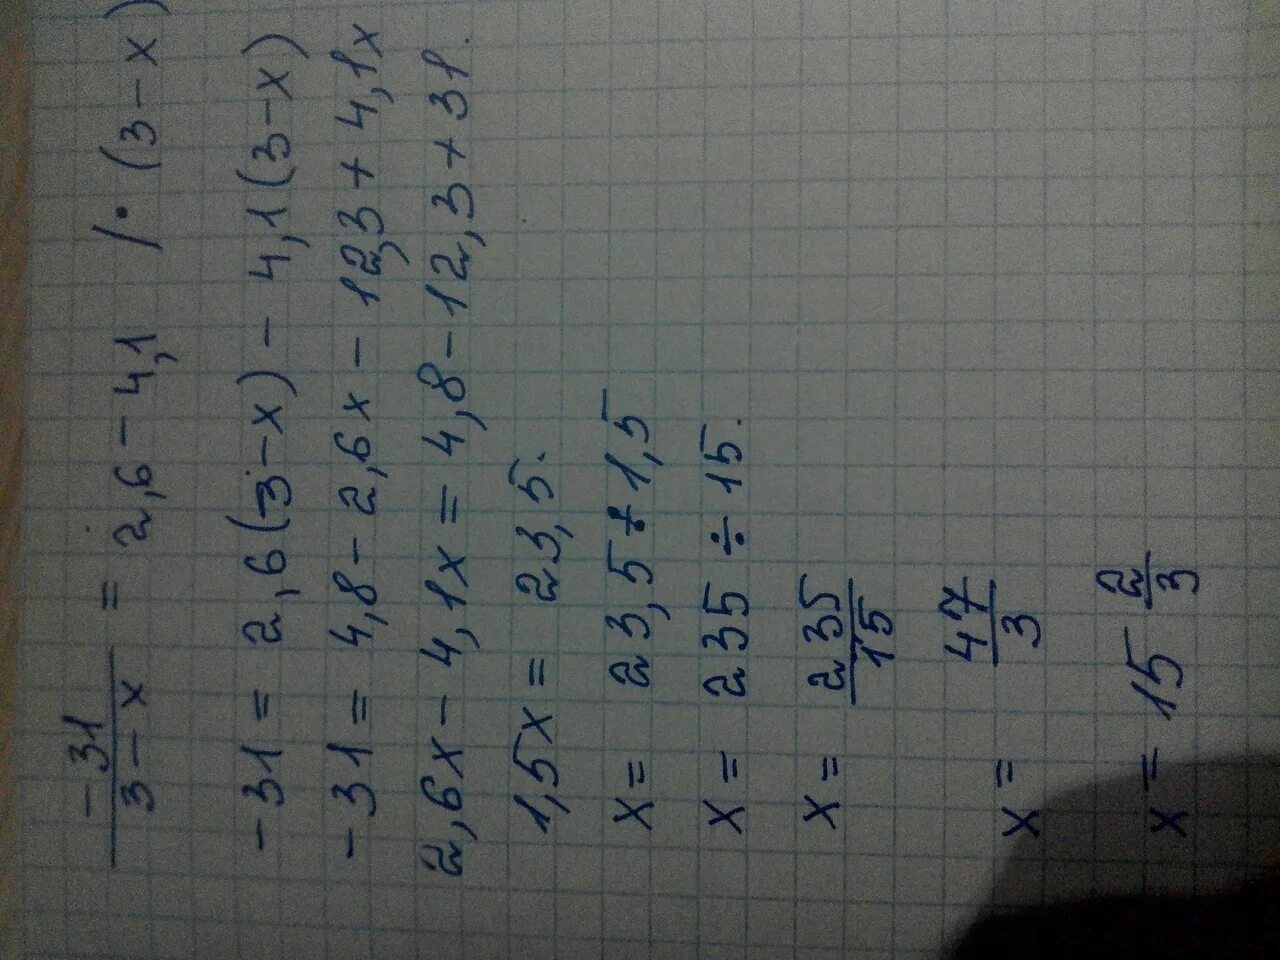 -31/(3-x) = 2,6-4,1 /·(3-x)
-31 = 2,6(3-x) - 4,1(3-x)
-31 = 4,8-2,6x-12,3+4,1x
2,6x-4,1x = 4,8-12,3+31.
1,5x = 23,5.
x = 23,5÷1,5
x = 235÷15.
x = 235/15
x = 47/3
x = 15 2/3